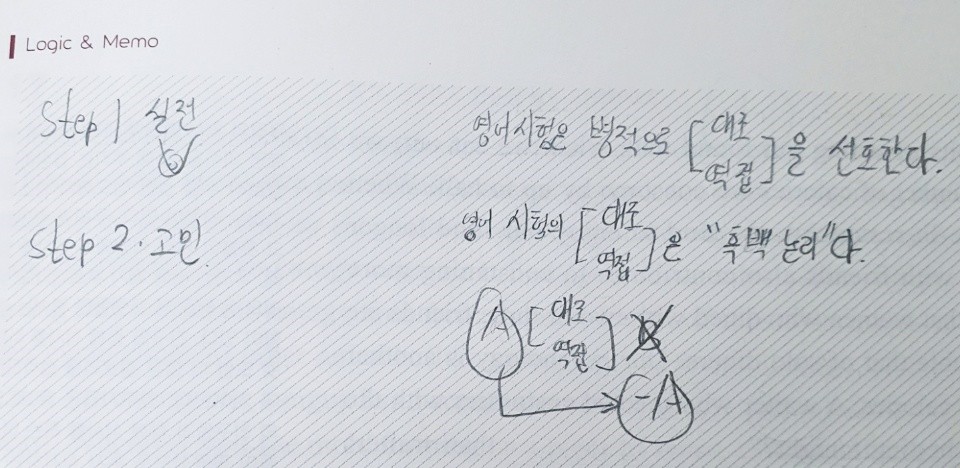 Logic & Memo
Step 1 실전
Step 2. 고민
영어시험은 병적으로 [대조 역접]을 선호한다.
영어 시험의 [대조 역접]은 "흑백 논리"다.
A [대조 역접] B
-A